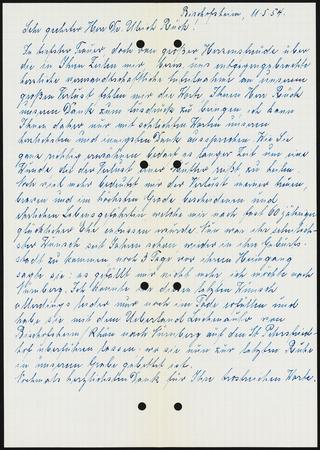 Bischofsheim, 11.5.54.
Sehr geehrter Herr Dr. Ulrich Rück!
In tiefster Trauer doch von großer Herzensfreude über
die in Ihren Zeilen mir, bezw. uns entgegengebrachte
herzliche verwandtschaftliche Anteilnahme an unserem
großen Verlust fehlen mir die Worte Ihnen Herr Rück
unseren Dank zum Ausdruck zu bringen, ich kann
Ihnen daher nur mit schlichten Worten unseren
herzlichsten und innigsten Dank aussprechen. Wie Sie
ganz richtig erwähnen bedarf es langer Zeit um eine
Wunde die der Verlust einer Mutter reißt zu heilen.
Noch viel mehr bedrückt mir der Verlust meiner treuen,
braven und im höchsten Grade bescheidenen und
ehrlichen Lebensgefährtin welche mir nach fast 60 jähriger
glücklicher Ehe entrissen wurde. Nun war ihr sehnlich-
ster Wunsch seit Jahren schon wieder in ihre Geburts-
stadt zu kommen noch 3 Tage vor ihrem Heimgang
sagte sie: es gefällt mir nicht mehr ich möchte nach
Nürnberg. Ich konnte ihr diesen letzten Wunsch
allerdings leider nur noch im Tode erfüllen und
habe sie mit dem Ueberland Leichenauto von
Bischofsheim/Rhön nach Nürnberg auf den St. Petersfried-
hof überführen lassen, wo sie nun zur letzten Ruhe
in unserem Grabe gebettet ist.
Nochmals herzlichsten Dank für Ihre trostreichen Worte.